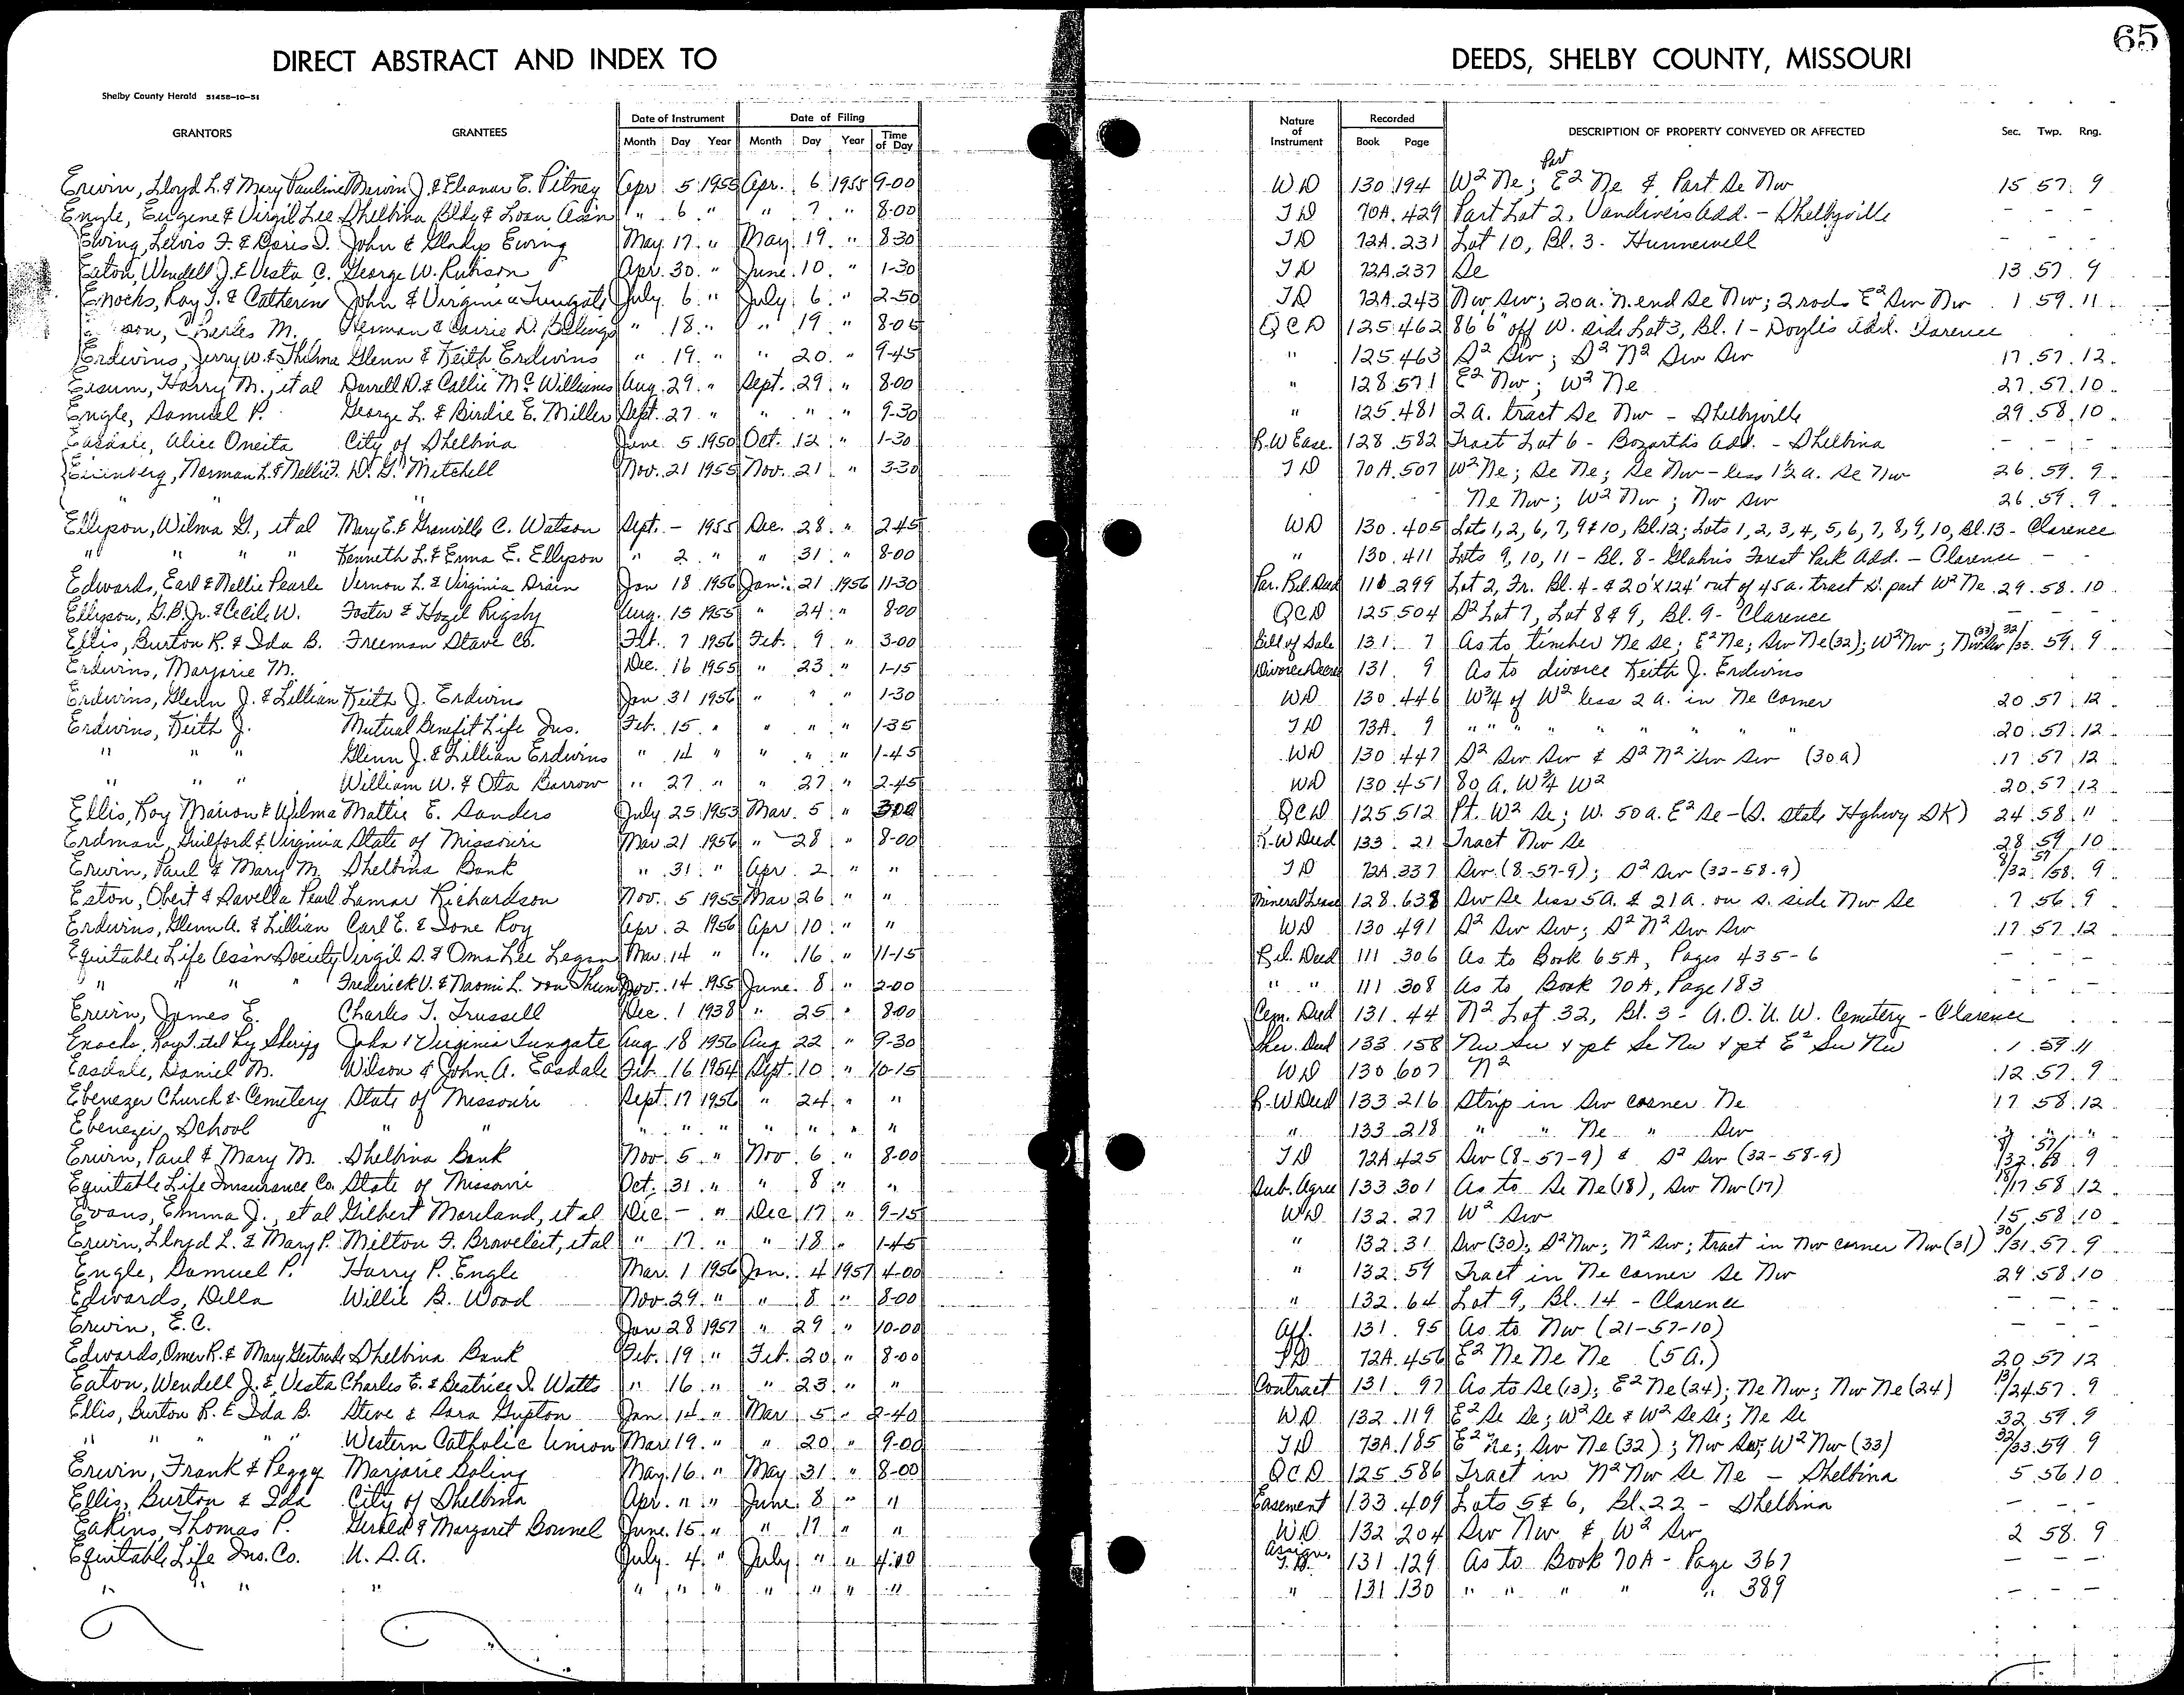 65
DIRECT ABSTRACT AND INDEX TO DEEDS, SHELBY COUNTY, MISSOURI
Shelby County Herald 51458-10-51
GRANTORS GRANTEES Date of Instrument Date of Filing Nature of Instrument Recorded DESCRIPTION OF PROPERTY CONVEYED OR AFFECTED Sec. Twp. Rng.
Month Day Year Month Day Year Time of Day Book Page
Erwin, Lloyd L. & Mary Pauline Marvin J. & Eleanor E. Pitney Apr 5 1955 Apr. 6 1955 9-00 WD 130 194 W² Ne; Part E² Ne & Part Se Nw 15 57 9
Engle, Eugene & Virgil Lee Shelbina Bldg & Loan Assn " 6 " " 7 " 8-00 TD 70A 429 Part Lot 2, Vandivers Add. - Shelbyville - - -
Ewing, Lewis F. & Doris D. John & Gladys Ewing May 17 " May 19 " 8-30 TD 72A 231 Lot 10, Bl. 3 - Hunnewell - - -
Eaton, Wendell J. & Vesta C. George W. Rubison Apr. 30 " June 10 " 1-30 TD 72A 237 Se 13 57 9
Enochs, Roy T. & Catherine John & Virginia Tungate July 6 " July 6 " 2-50 TD 72A 243 Nw Sw; 20a. N. end Se Nw; 2 rods E² Sw Nw 1 59 11
son, Charles M. Herman & Carrie D. Billings " 18 " " 19 " 8-05 QCD 125 462 86'6" off W. side Lot 3, Bl. 1 - Doyle's Add. Clarence
Erdwins, Jerry W. & Thelma Glenn & Keith Erdwins " 19 " " 20 " 9-45 " 125 463 S² Sw; S² N² Sw Sw 17 57 12
Eisum, Harry M., et al Darrell D. & Callie McWilliams Aug. 29 " Sept. 29 " 8-00 " 128 571 E² Nw; W² Ne 27 57 10
Engle, Samuel P. George L. & Birdie E. Miller Sept. 27 " " " " 9-30 " 125 481 2 a. tract Se Nw - Shelbyville 29 58 10
Easdale, Alice Oneita City of Shelbina June 5 1950 Oct. 12 " 1-30 R.W Ease. 128 582 Tract Lot 6 - Bozarth's Add. - Shelbina - - -
Norman L. & Nellie F. D. G. Mitchell Nov. 21 1955 Nov. 21 " 3-30 TD 70A 507 W² Ne; Se Ne; Se Nw - less 1½ a. Se Nw 26 59 9
" " Ne Nw; W² Nw; Nw Sw 26 59 9
Ellyson, Wilma G., et al Mary E. & Granville C. Watson Sept. - 1955 Dec. 28 " 2-45 WD 130 405 Lots 1, 2, 6, 7, 9 & 10, Bl. 12; Lots 1, 2, 3, 4, 5, 6, 7, 8, 9, 10, Bl. 13 - Clarence
" " " " Kenneth L. & Erma E. Ellyson " 2 " " 31 " 8-00 " 130 411 Lots 9, 10, 11 - Bl. 8 - Glahn's Forest Park Add. - Clarence - -
Edwards, Earl & Nellie Pearle Vernon L. & Virginia Drain Jan 18 1956 Jan. 21 1956 11-30 Par. Rel. Deed 110 299 Lot 2, Fr. Bl. 4 - & 20'x124' out of 45a. tract S. part W² Ne 29 58 10
Ellyson, G.B. Jr. & Cecile W. Foster & Hazel Rigsby Aug. 15 1955 " 24 " 8-00 QCD 125 504 S² Lot 7, Lot 8 & 9, Bl. 9 - Clarence - - -
Ellis, Burton R. & Ida B. Freeman Stave Co. Feb. 7 1956 Feb. 9 " 3-00 Bill of Sale 131 7 As to timber Ne Se; E² Ne; Sw Ne (32); W² Nw; Nw Sw (33) 32/33 59 9
Erdwins, Marjorie M. Dec. 16 1955 " 23 " 1-15 Divorce Decree 131 9 As to divorce Keith J. Erdwins
Erdwins, Glenn J. & Lillian Keith J. Erdwins Jan 31 1956 " " " 1-30 WD 130 446 W¾ of W² less 2 a. in Ne Corner 20 57 12
Erdwins, Keith J. Mutual Benefit Life Ins. Feb. 15 " " " " 1-35 TD 73A 9 " " " " " " " " 20 57 12
" " " Glenn J. & Lillian Erdwins " 14 " " " " 1-45 WD 130 447 S² Sw Sw & S² N² Sw Sw (30a) 17 57 12
" " " William W. & Ota Barrow " 27 " " 27 " 2-45 WD 130 451 80 A. W¾ W² 20 57 12
Ellis, Roy Marion & Wilma Mattie E. Sanders July 25 1953 Mar. 5 " 3-00 QCD 125 512 Pt. W² Se; W. 50 a. E² Se - (S. State Highwy DK) 24 58 11
Erdman, Guilford & Virginia State of Missouri Mar 21 1956 " 28 " 8-00 R-W Deed 133 21 Tract Nw Se 28 59 10
Erwin, Paul & Mary M. Shelbina Bank " 31 " Apr 2 " " TD 72A 337 Sw (8-57-9); S² Sw (32-58-9) 8/32 57/58 9
Eston, Obert & Savella Pearl Lamar Richardson Nov. 5 1955 Mar 26 " " Mineral Lease 128 638 Sw Se less 5A. & 21A. on S. side Nw Se 7 56 9
Erdwins, Glenn A. & Lillian Carl E. & Ione Roy Apr. 2 1956 Apr 10 " " WD 130 491 S² Sw Sw; S² N² Sw Sw 17 57 12
Equitable Life Assn Society Virgil S. & Oma Lee Legan Mar. 14 " " 16 " 11-15 Rel. Deed 111 306 As to Book 65A, Pages 435-6 - - -
" " " " Frederick V. & Naomi L. von Thun Nov. 14 1955 June 8 " 2-00 " " 111 308 As to Book 70A, Page 183 - - -
Erwin, James E. Charles T. Trussell Dec. 1 1938 " 25 " 8-00 Cem. Deed 131 44 N² Lot 32, Bl. 3 - A.O.U.W. Cemetery - Clarence
Enochs, Roy T. et al by Sheriff John & Virginia Tungate Aug 18 1956 Aug 22 " 9-30 Sher. Deed 133 158 Nw Sw & pt Se Nw & pt E² Sw Nw 1 59 11
Easdale, Daniel M. Wilson & John A. Easdale Feb. 16 1954 Sept. 10 " 10-15 WD 130 607 N² 12 57 9
Ebenezer Church & Cemetery State of Missouri Sept. 17 1956 " 24 " " R-W Deed 133 216 Strip in Sw corner Ne 17 58 12
Ebenezer School " " " " " " " " " " 133 218 " " Ne " Sw " " "
Erwin, Paul & Mary M. Shelbina Bank Nov 5 " Nov 6 " 8-00 TD 72A 425 Sw (8-57-9) & S² Sw (32-58-9) 8/32 57/58 9
Equitable Life Insurance Co. State of Missouri Oct. 31 " " 8 " " Sub. Agree 133 301 As to Se Ne (18), Sw Nw (17) 18/17 58 12
Evans, Emma J., et al Gilbert Moreland, et al Dec - " Dec 17 " 9-15 WD 132 27 W² Sw 15 58 10
Erwin, Lloyd L. & Mary P. Milton F. Braveleit, et al " 17 " " 18 " 1-45 " 132 31 Sw (30); S² Nw; N² Sw; tract in Nw corner Nw (31) 30/31 57 9
Engle, Samuel P. Harry P. Engle Mar. 1 1956 Jan. 4 1957 4-00 " 132 59 Tract in Ne corner Se Nw 29 58 10
Edwards, Della Willie B. Wood Nov 29 " " 8 " 8-00 " 132 64 Lot 9, Bl. 14 - Clarence - - -
Erwin, E.C. Jan 28 1957 " 29 " 10-00 Aff. 131 95 As to Nw (21-57-10) - - -
Edwards, Omer R. & Mary Gertrude Shelbina Bank Feb. 19 " Feb. 20 " 8-00 TD 72A 456 E² Ne Ne Ne (5 A.) 20 57 12
Eaton, Wendell J. & Vesta Charles E. & Beatrice I. Watts " 16 " " 23 " " Contract 131 97 As to Se (13); E² Ne (24); Ne Nw; Nw Ne (24) 13/24 57 9
Ellis, Burton R. & Ida B. Steve & Sara Gupton Jan 14 " Mar 5 " 2-40 WD 132 119 E² Se Se; W² Se & W² Se Se; Ne Se 32 59 9
" " " " Western Catholic Union Mar 19 " " 20 " 9-00 TD 73A 185 E² Ne; Sw Ne (32); Nw Sw; W² Nw (33) 32/33 59 9
Erwin, Frank & Peggy Marjorie Boling May 16 " May 31 " 8-00 QCD 125 586 Tract in N² Nw Se Ne - Shelbina 5 56 10
Ellis, Burton & Ida City of Shelbina Apr. " " June 8 " " Easement 133 409 Lots 5 & 6, Bl. 22 - Shelbina - - -
Eakins, Thomas P. Gerald & Margaret Bonnel June 15 " " 17 " " WD 132 204 Sw Nw & W² Sw 2 58 9
Equitable Life Ins. Co. U.S.A. July 4 " July " " 4:00 Assign. T.D. 131 129 As to Book 70A - Page 367 - - -
" " " " " " " " " " " " 131 130 " " " " " 389 - - -